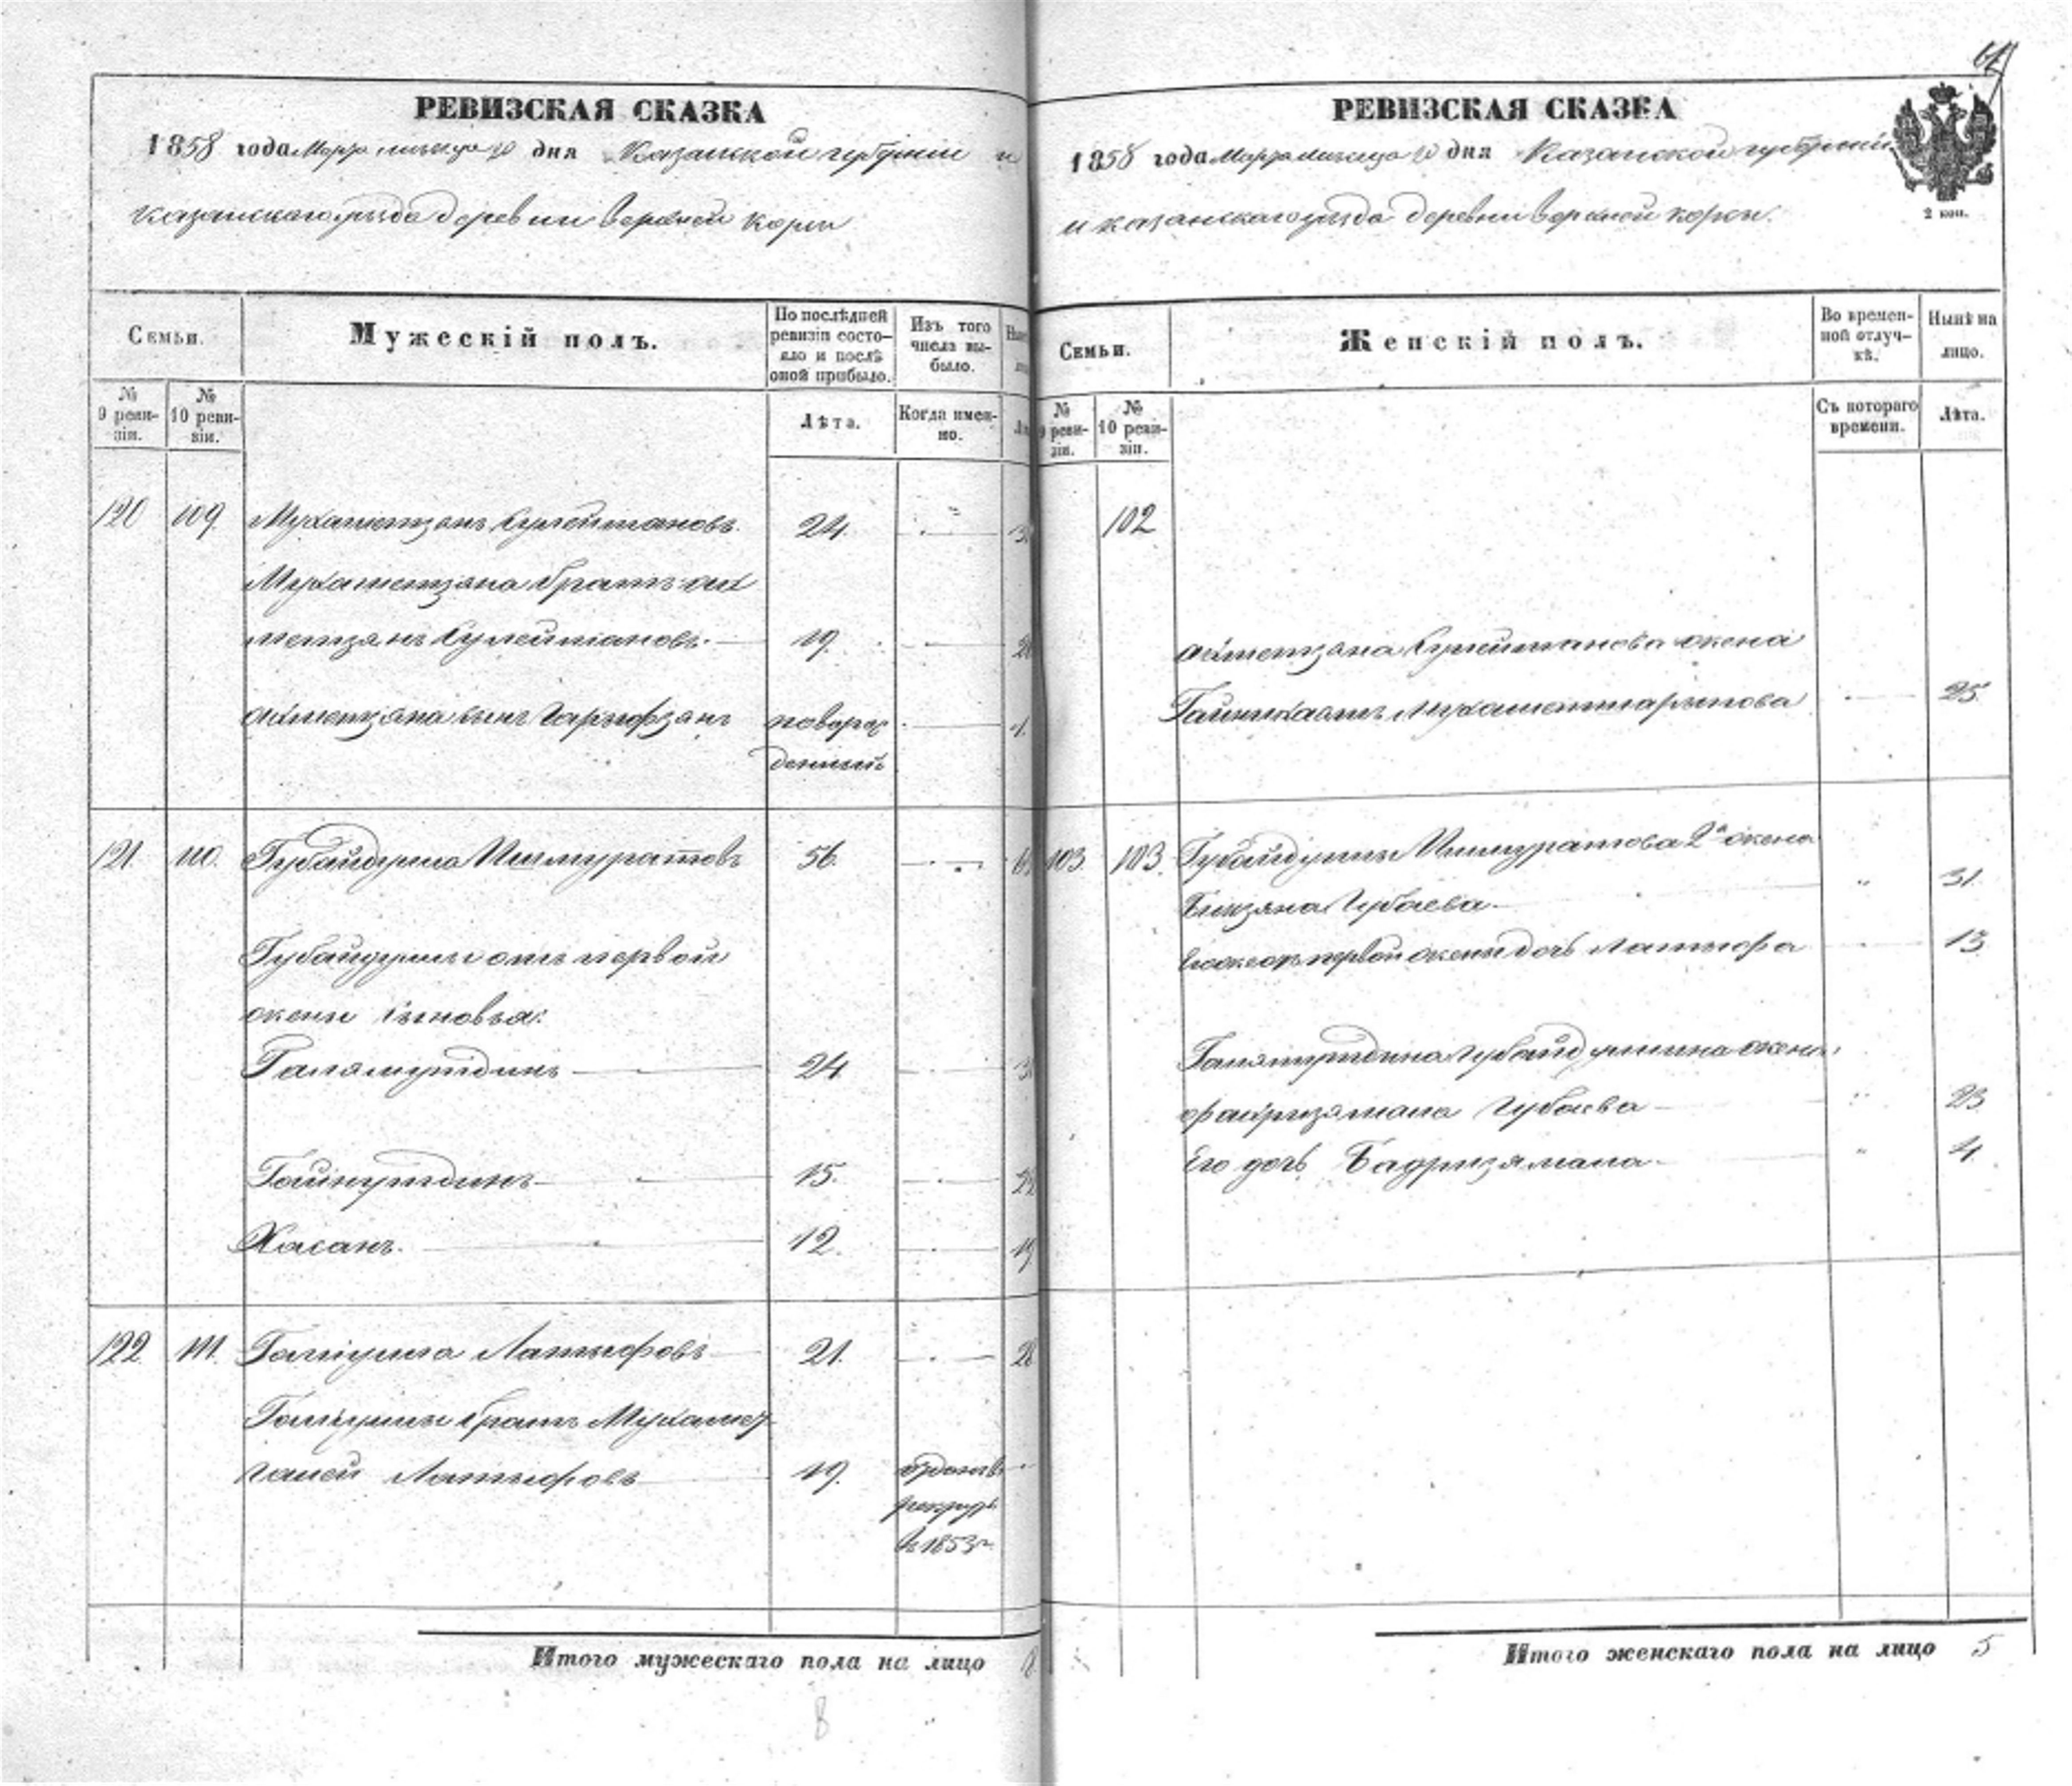 64
РЕВИЗСКАЯ СКАЗКА
1858 года Марта месяца 20 дня Казанской губернии и
казанскаго уезда деревни верхней корсы
Семьи.
Мужескій полъ.
По послѣдней ревизіи состояло и послѣ оной прибыло.
Изъ того числа выбыло.
№ 9 ревизіи.
№ 10 ревизіи.
Лѣта.
Когда именно.
120 109 Мухаметзянъ Сулеймановъ 24
Мухаметзяна братъ ах
метзянъ Сулеймановъ 19.
ахметзяна сынъ Гарифзянъ новорож
денный 1.
121. 110. Губайдулла Ишмуратовъ 56.
Губайдуллы отъ первой
жены сыновья:
Галямутдинъ 24
Гайнутдинъ 15.
Хасанъ. 12. 19
122. 111. Галиулла Латыфовъ 21. 28
Галиуллы братъ Мухамет
галей Латыфовъ 19. отданъ в
рекруты
въ 1853 г.
Итого мужескаго пола на лицо
8
РЕВИЗСКАЯ СКАЗКА
1858 года Марта месяца 20 дня Казанской губернии
и казанскаго уезда деревни верхней корсы.
2 коп.
Семьи.
Женскій полъ.
Во временной отлучкѣ.
Нынѣ на лицо.
№ 9 ревизіи.
№ 10 ревизіи.
Съ котораго времени.
Лѣта.
102
ахметзяна Сулейманова жена
Мухаметшарыпова 25
103. 103. Губайдуллы Ишмуратова 2я жена
Бикзяна Губаева 31.
его же отъ первой жены дочь Латыфа 13
Галямутдина Губайдуллина жена
Фахризямала Губаева 23
Его дочь Бадризямала 4.
Итого женскаго пола на лицо 5